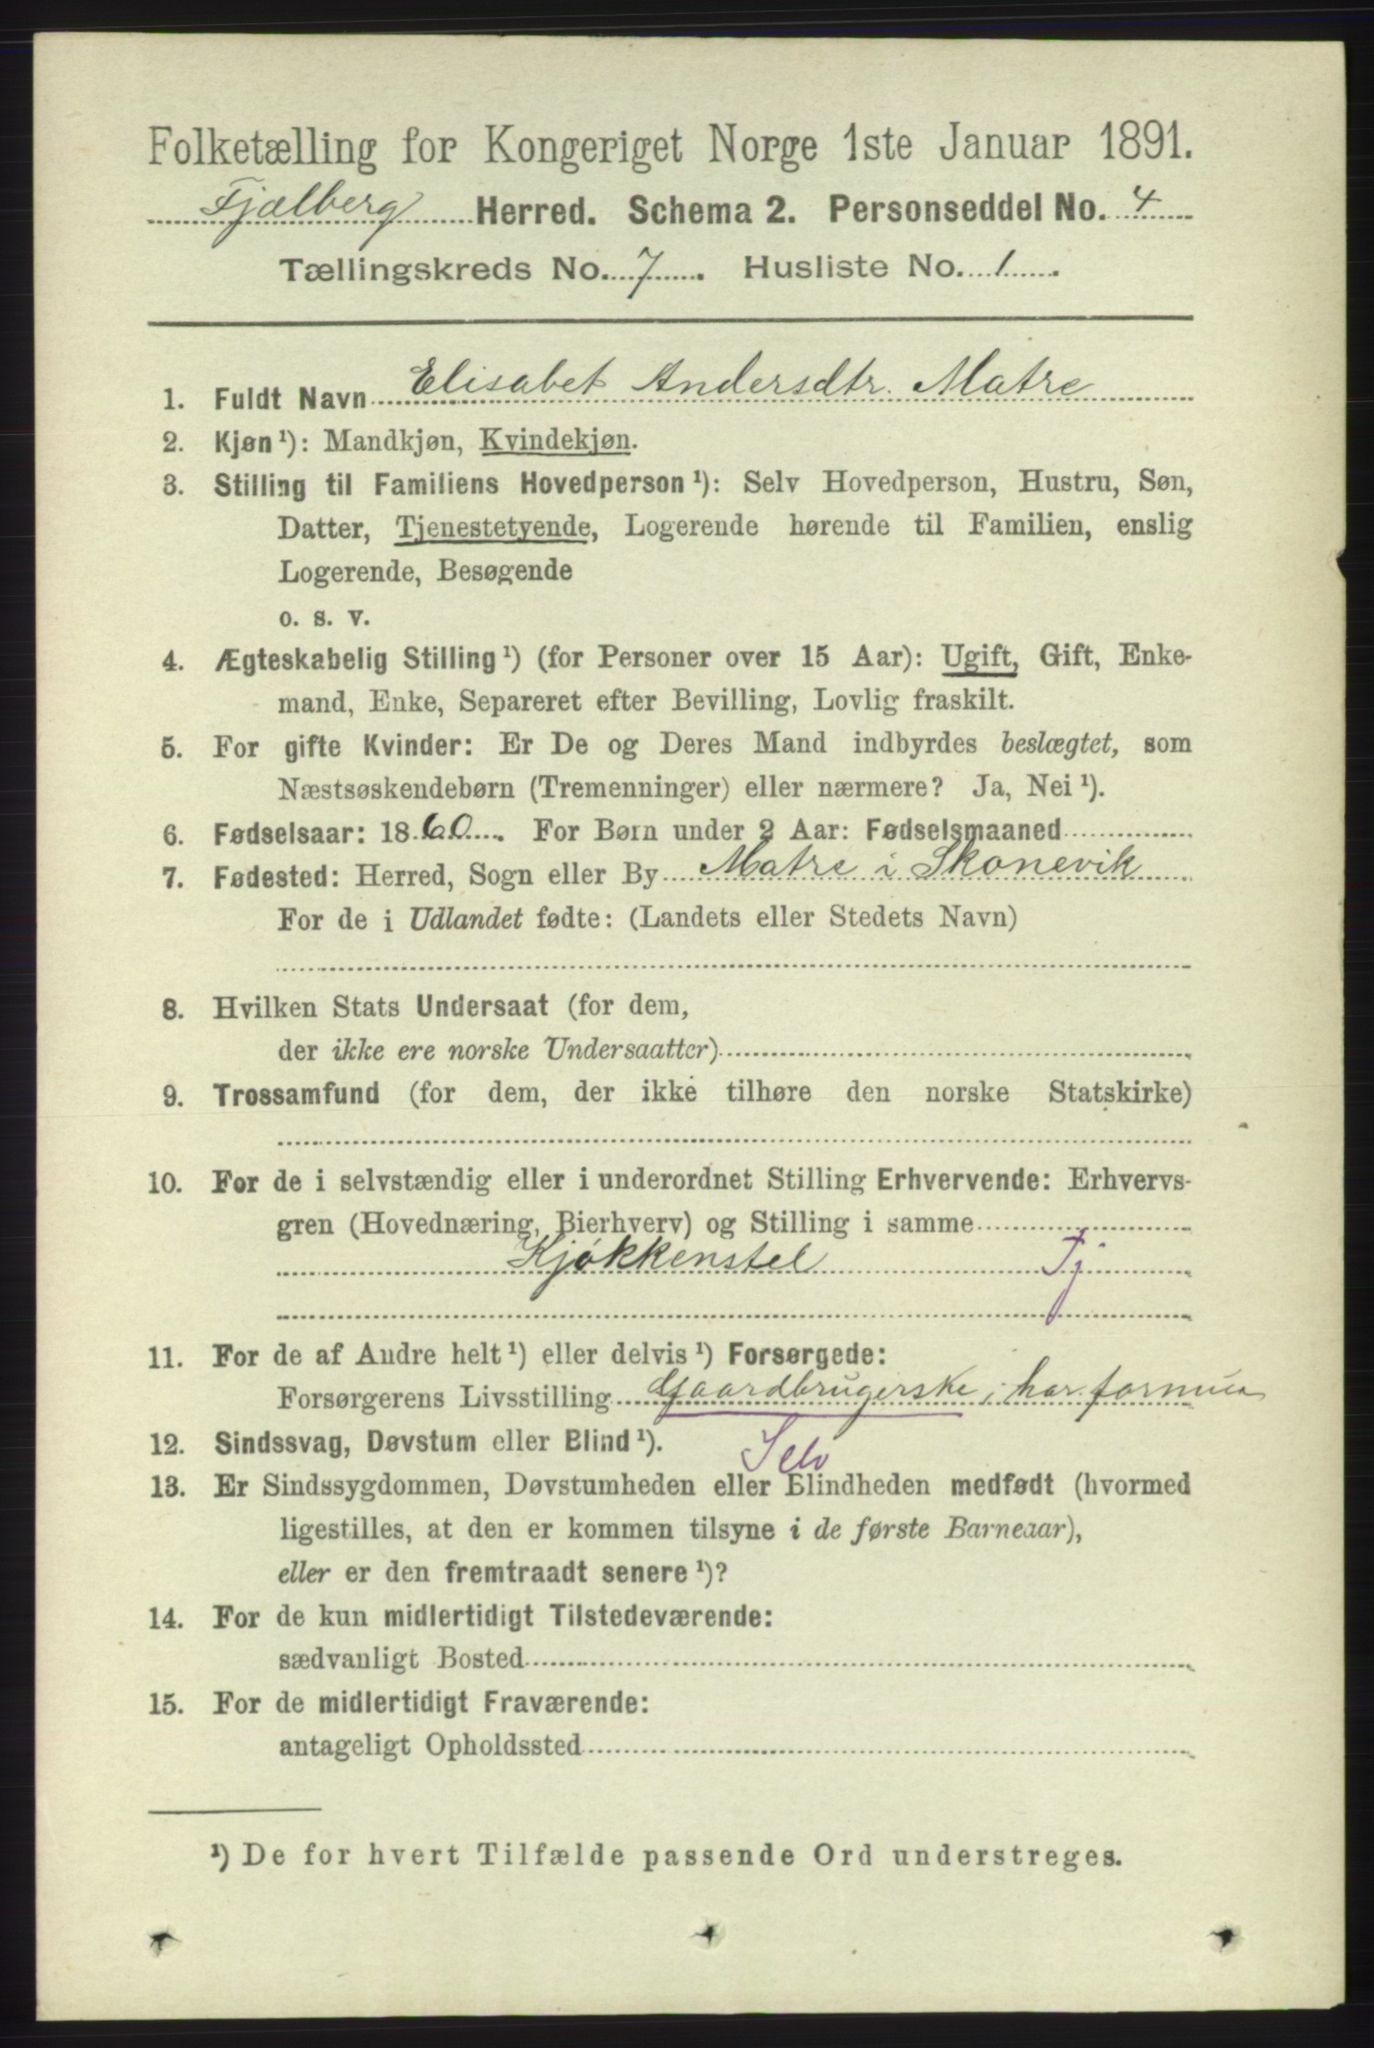 Folketælling for Kongeriget Norge 1ste Januar 1891.
Fjælberg Herred. Schema 2. Personseddel No. 4
Tællingskreds No. 7. Husliste No. 1.
1. Fuldt Navn Elisabet Andersdtr. Matre
2. Kjøn¹): Mandkjøn, Kvindekjøn.
3. Stilling til Familiens Hovedperson¹): Selv Hovedperson, Hustru, Søn,
Datter, Tjenestetyende, Logerende hørende til Familien, enslig
Logerende, Besøgende
o. s. v.
4. Ægteskabelig Stilling¹) (for Personer over 15 Aar): Ugift, Gift, Enke-
mand, Enke, Separeret efter Bevilling, Lovlig fraskilt.
5. For gifte Kvinder: Er De og Deres Mand indbyrdes beslægtet, som
Næstsøskendebørn (Tremenninger) eller nærmere? Ja, Nei¹).
6. Fødselsaar: 1860. For Børn under 2 Aar: Fødselsmaaned
7. Fødested: Herred, Sogn eller By Matre i Skonevik
For de i Udlandet fødte: (Landets eller Stedets Navn)
8. Hvilken Stats Undersaat (for dem,
der ikke ere norske Undersaatter)
9. Trossamfund (for dem, der ikke tilhøre den norske Statskirke)
10. For de i selvstændig eller i underordnet Stilling Erhvervende: Erhvervs-
gren (Hovednæring, Bierhverv) og Stilling i samme
Kjøkkenstel Tj
11. For de af Andre helt¹) eller delvis¹) Forsørgede:
Forsørgerens Livsstilling Gaardbrugerske; har formue
12. Sindssvag, Døvstum eller Blind¹). Selv
13. Er Sindssygdommen, Døvstumheden eller Blindheden medfødt (hvormed
ligestilles, at den er kommen tilsyne i de første Barneaar),
eller er den fremtraadt senere¹)?
14. For de kun midlertidigt Tilstedeværende:
sædvanligt Bosted
15. For de midlertidigt Fraværende:
antageligt Opholdssted
¹) De for hvert Tilfælde passende Ord understreges.